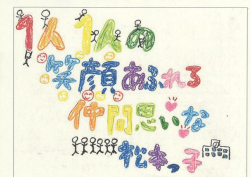 1人1人の
笑顔あふれる
仲間思いな
松本っ子